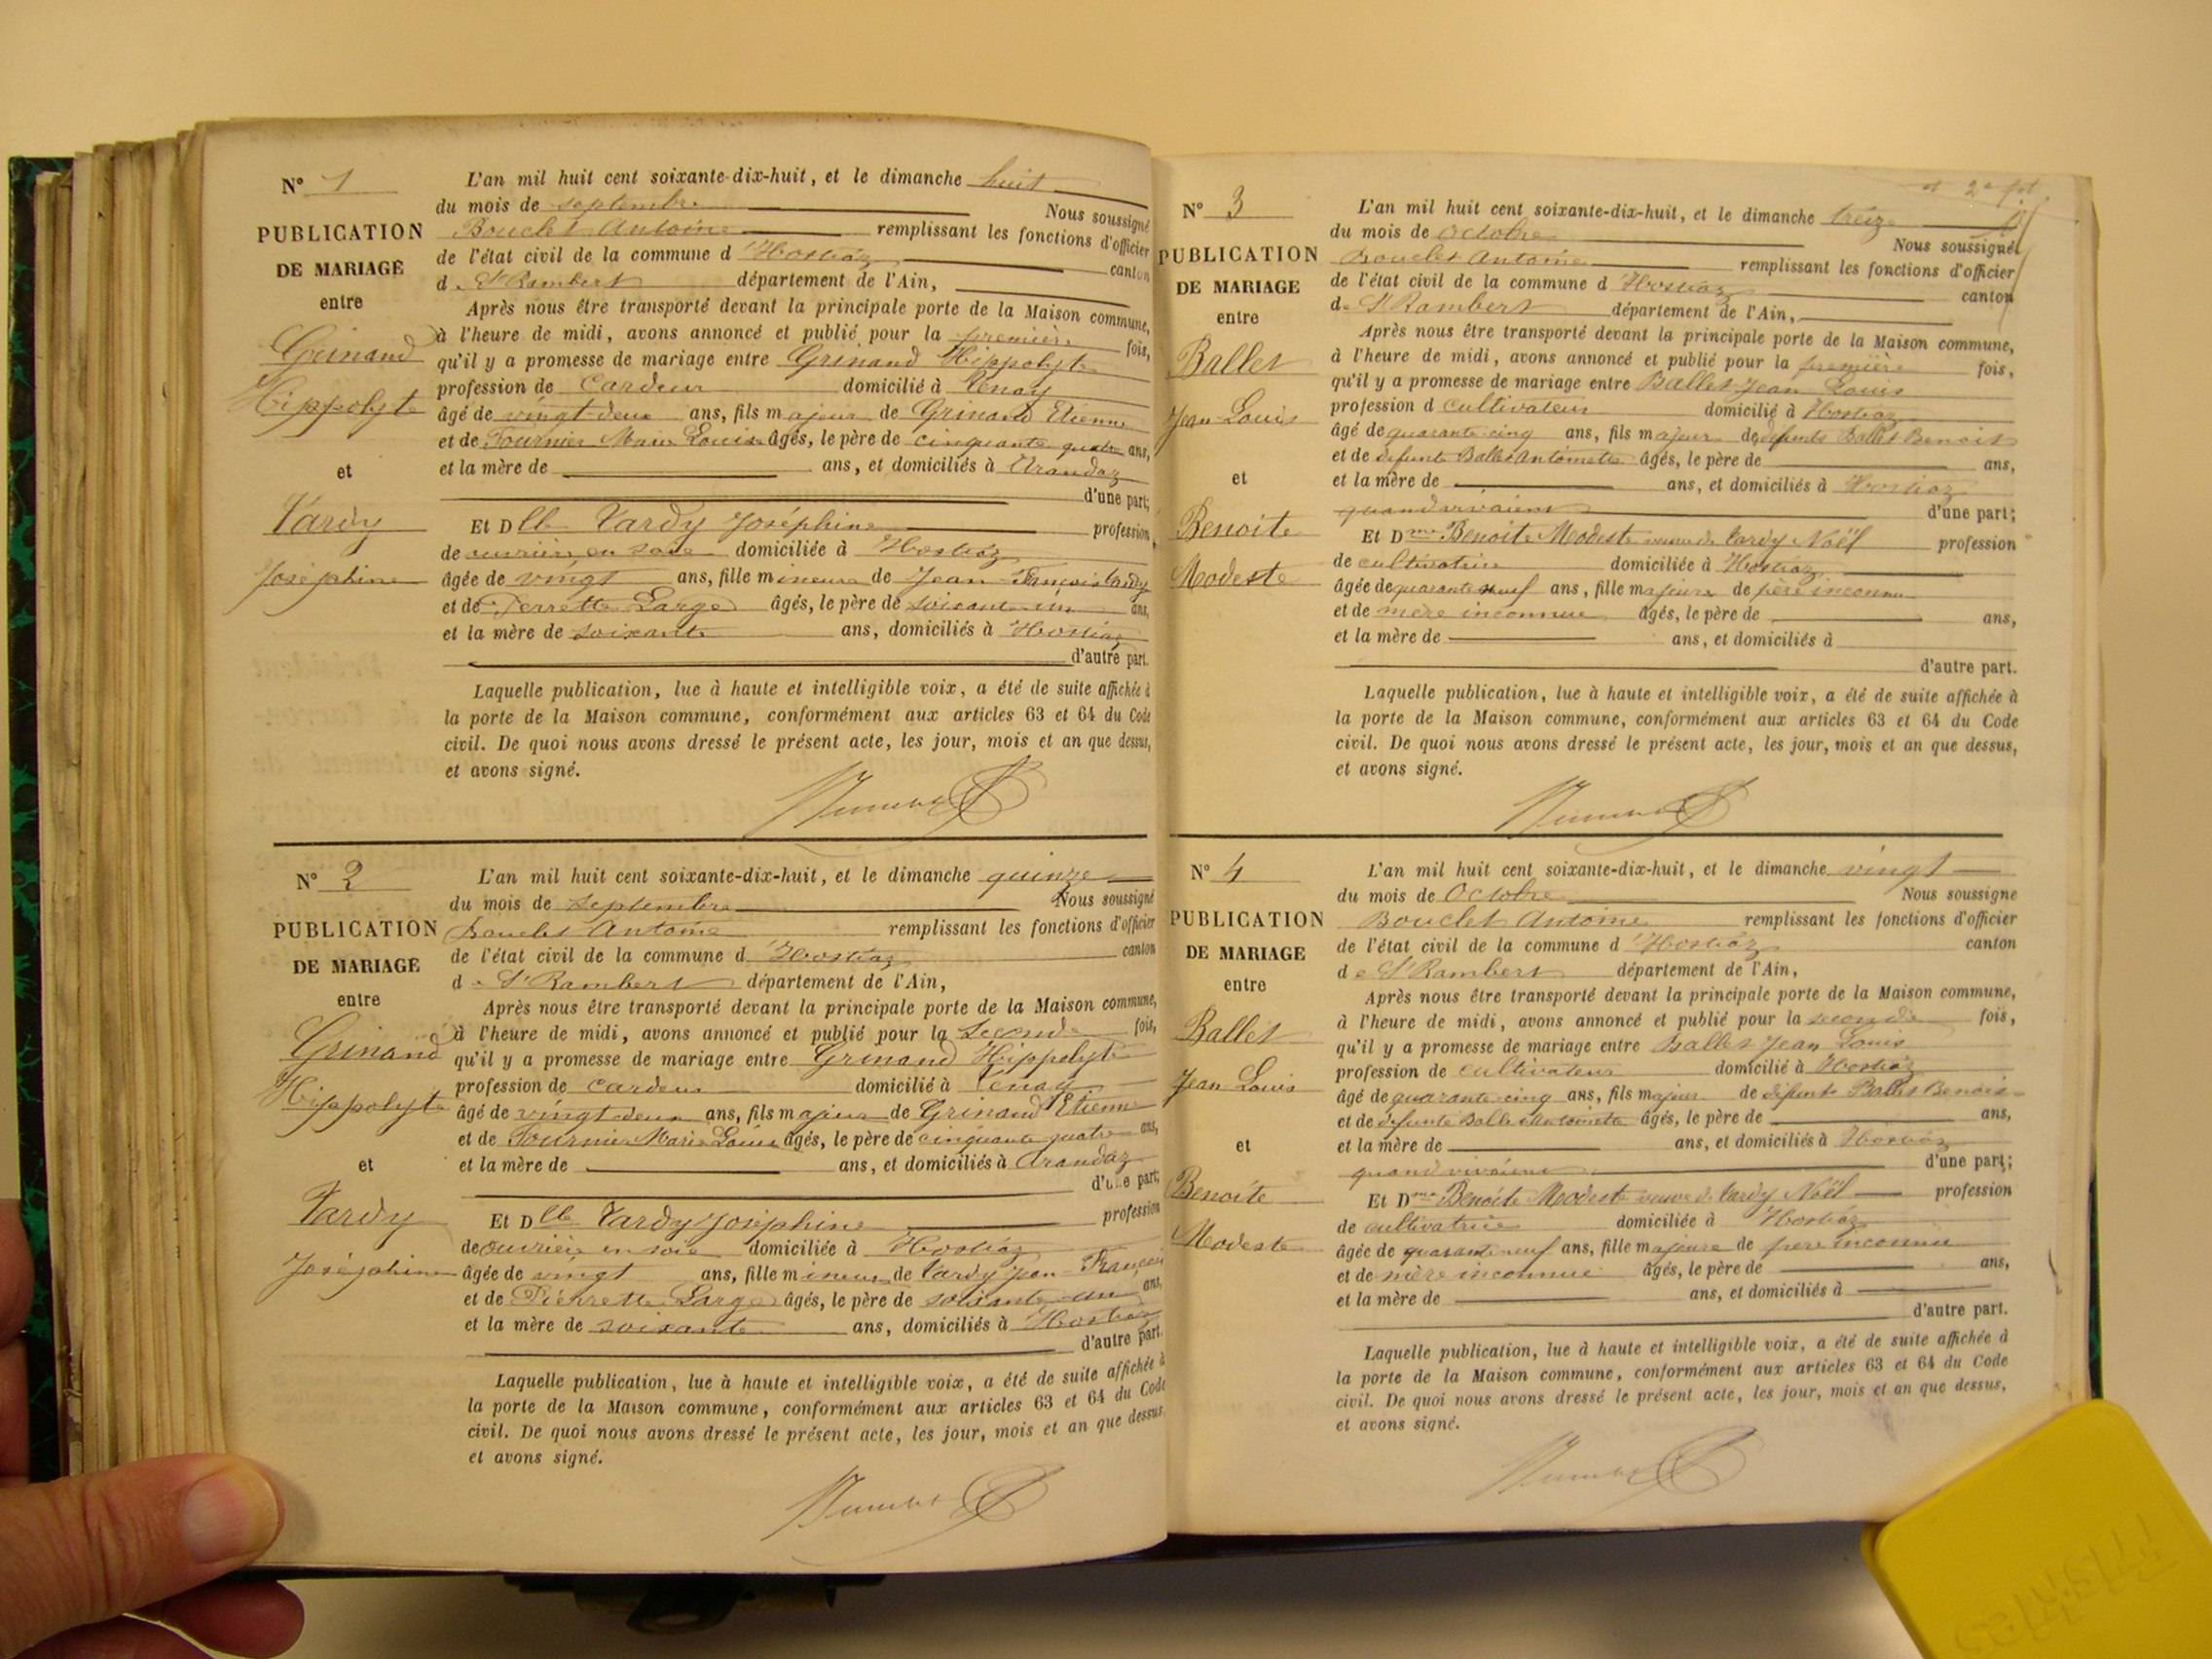 N° 1
PUBLICATION
DE MARIAGE
entre
Grinand
Hippolyte
et
Tardy
Joséphine
L'an mil huit cent soixante-dix-huit, et le dimanche huit
du mois de septembre Nous soussigné
Bouclet Antoine remplissant les fonctions d'officier
de l'état civil de la commune d'Hostiaz canton
de St Rambert département de l'Ain,
Après nous être transporté devant la principale porte de la Maison commune,
à l'heure de midi, avons annoncé et publié pour la première fois,
qu'il y a promesse de mariage entre Grinand Hippolyte
profession de Cardeur domicilié à Tenay
âgé de vingt deux ans, fils majeur de Grinand Etienne
et de Fournier Marie Louise âgés, le père de cinquante quatre ans,
et la mère de ans, et domiciliés à Arandaz
d'une part;
Et Dlle Tardy Joséphine profession
de ouvrière en soie domiciliée à Hostiaz
âgée de vingt ans, fille mineure de Jean-François Tardy
et de Perrette Large âgés, le père de soixante un ans,
et la mère de soixante ans, domiciliés à Hostiaz
d'autre part.
Laquelle publication, lue à haute et intelligible voix, a été de suite affichée à
la porte de la Maison commune, conformément aux articles 63 et 64 du Code
civil. De quoi nous avons dressé le présent acte, les jour, mois et an que dessus,
et avons signé.
N° 2
PUBLICATION
DE MARIAGE
entre
Grinand
Hippolyte
et
Tardy
Joséphine
L'an mil huit cent soixante-dix-huit, et le dimanche quinze
du mois de septembre Nous soussigné
Bouclet Antoine remplissant les fonctions d'officier
de l'état civil de la commune d'Hostiaz canton
de St Rambert département de l'Ain,
Après nous être transporté devant la principale porte de la Maison commune,
à l'heure de midi, avons annoncé et publié pour la seconde fois,
qu'il y a promesse de mariage entre Grinand Hippolyte
profession de cardeur domicilié à Tenay
âgé de vingt deux ans, fils majeur de Grinand Etienne
et de Fournier Marie Louise âgés, le père de cinquante quatre ans,
et la mère de ans, et domiciliés à Arandaz
d'une part;
Et Dlle Tardy Joséphine profession
de ouvrière en soie domiciliée à Hostiaz
âgée de vingt ans, fille mineure de Tardy Jean-François
et de Pierrette Large âgés, le père de soixante un ans,
et la mère de soixante ans, domiciliés à Hostiaz
d'autre part.
Laquelle publication, lue à haute et intelligible voix, a été de suite affichée à
la porte de la Maison commune, conformément aux articles 63 et 64 du Code
civil. De quoi nous avons dressé le présent acte, les jour, mois et an que dessus,
et avons signé.
N° 3
PUBLICATION
DE MARIAGE
entre
Ballet
Jean Louis
et
Benoite
Modeste
L'an mil huit cent soixante-dix-huit, et le dimanche treize
du mois de octobre Nous soussigné
Bouclet Antoine remplissant les fonctions d'officier
de l'état civil de la commune d'Hostiaz canton
de St Rambert département de l'Ain,
Après nous être transporté devant la principale porte de la Maison commune,
à l'heure de midi, avons annoncé et publié pour la première fois,
qu'il y a promesse de mariage entre Ballet Jean Louis
profession d cultivateur domicilié à Hostiaz
âgé de quarante cinq ans, fils majeur de défunts Ballet Benoit
et de défunte Ballet Antoinette âgés, le père de ans,
et la mère de ans, et domiciliés à Hostiaz
quand vivaient d'une part;
Et Dme Benoite Modeste veuve de Tardy Noël profession
de cultivatrice domiciliée à Hostiaz
âgée de quarante neuf ans, fille majeure de père inconnu
et de mère inconnue âgés, le père de ans,
et la mère de ans, et domiciliés à
d'autre part.
Laquelle publication, lue à haute et intelligible voix, a été de suite affichée à
la porte de la Maison commune, conformément aux articles 63 et 64 du Code
civil. De quoi nous avons dressé le présent acte, les jour, mois et an que dessus,
et avons signé.
N° 4
PUBLICATION
DE MARIAGE
entre
Ballet
Jean Louis
et
Benoite
Modeste
L'an mil huit cent soixante-dix-huit, et le dimanche vingt
du mois de Octobre Nous soussigné
Bouclet Antoine remplissant les fonctions d'officier
de l'état civil de la commune d'Hostiaz canton
de St Rambert département de l'Ain,
Après nous être transporté devant la principale porte de la Maison commune,
à l'heure de midi, avons annoncé et publié pour la seconde fois,
qu'il y a promesse de mariage entre Ballet Jean Louis
profession de cultivateur domicilié à Hostiaz
âgé de quarante cinq ans, fils majeur de défunts Ballet Benoit
et de défunte Ballet Antoinette âgés, le père de ans,
et la mère de ans, et domiciliés à Hostiaz
quand vivaient d'une part;
Et Dme Benoite Modeste veuve de Tardy Noël profession
de cultivatrice domiciliée à Hostiaz
âgée de quarante neuf ans, fille majeure de père inconnu
et de mère inconnue âgés, le père de ans,
et la mère de ans, et domiciliés à
d'autre part.
Laquelle publication, lue à haute et intelligible voix, a été de suite affichée à
la porte de la Maison commune, conformément aux articles 63 et 64 du Code
civil. De quoi nous avons dressé le présent acte, les jour, mois et an que dessus,
et avons signé.